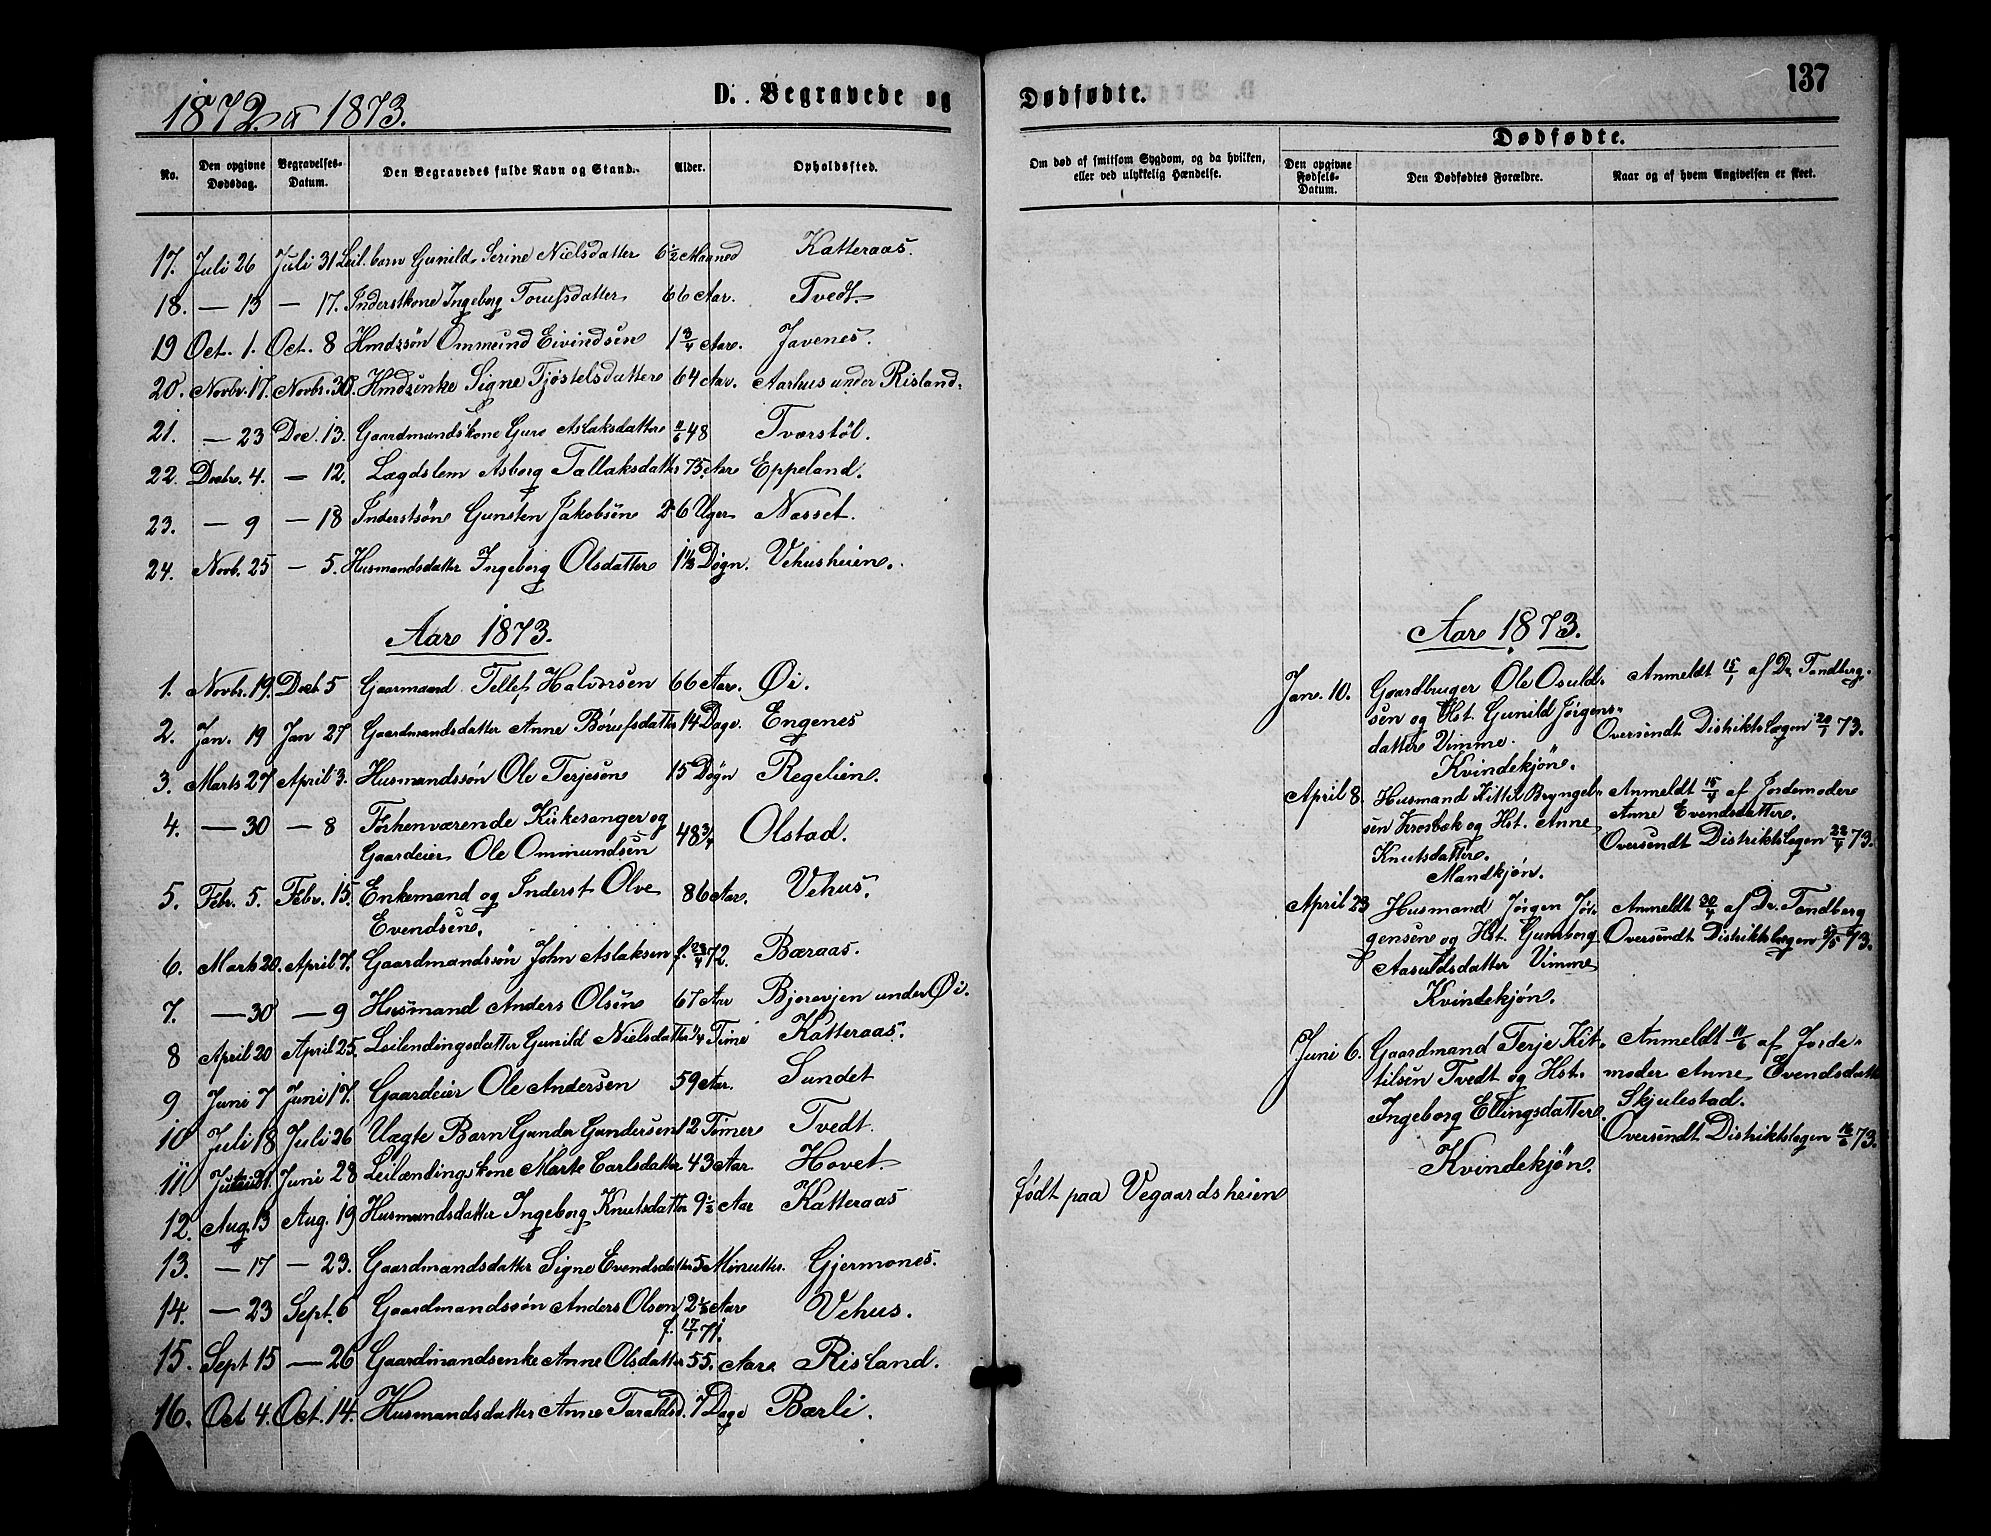 1872 & 1873.
D. Begravede og Dødfødte.
137
No.
Den opgivne Dødsdag.
Begravelses-Datum.
Den Begravedes fulde Navn og Stand.
Alder.
Opholdssted.
Om død af smitsom Sygdom, og da hvilken, eller ved ulykkelig Hændelse.
Dødfødte.
Den opgivne Fødsels-Datum.
Den Dødfødtes Forældre.
Naar og af hvem Angivelsen er skeet.
17. Juli 26 Juli 31 Leil. barn Gunild Serine Nielsdatter 6½ Maaned Katteraas.
18. — 13 — 17. Inderstkone Ingeborg Torufsdatter 66 Aar. Tvedt.
19 Oct. 1. Oct. 8 Hmdssøn Ommund Eivindsen 1¾ Aar. Javenes.
20. Novbr. 17. Novbr. 30. Hmdsenke Signe Tjøstelsdatter 64 Aar. Aarhus under Risland.
21. — 23 Dec. 13. Gaardmandskone Guro Aslaksdatter 48 Tvorstøl.
22. Decbr. 4. — 12. Lægdslem Asborg Tallaksdatter 75 Aar Eppeland.
23. — 9 — 18 Inderstsøn Gunsten Jakobsen 6 Uger Næsset.
24. Novb. 25 — 5. Husmandsdatter Ingeborg Olsdatter Døgn. Vehusheien.
Aar 1873.
1. Novbr. 19. Decb. 5 Gaarmaand Tellef Halvorsen 66 Aar. Øi.
2. Jan. 19 Jan 27 Gaardmandsdatter Anne Børufsdatter 14 Dage. Engenes
3. Marts 27 April 3. Husmandssøn Ole Terjesøn 15 Døgn Regelien.
4. — 30 — 8 Forhenværende Kirkesanger og
Gaardeier Ole Ommundsen 48¾ Olstad.
5. Febr. 5. Febr. 15. Enkemand og Inderst Olve 86 Aar. Vehus.
Evendsen.
6. Marts 20. April 7. Gaardmandssøn John Aslaksen f. 23/4 72. Bæraas.
7. — 30 — 9 Husmand Anders Olsen 67 Aar Bjorevjen under Øi.
8 April 20 April 25. Leilendingsdatter Gunild Nielsdatter ¼ Time Katteraas.
9 Juni 7 Juni 17. Gaardeier Ole Andersen 59 Aar. Sundet
10 Juli 18 Juli 26 Uægte Barn Gunder Gundersen 12 Timer Tvedt.
11. 21. Juni 28 Leilændingskone Marte Carlsdatter 43 Aar. Hovet
12. Aug. 13 Aug. 19 Husmandsdatter Ingeborg Knutsdatter 9½ Aar Katteraas født paa Vegaardsheien
13. — 17 — 23. Gaardmandsdatter Signe Evendsdatter 5 Minutter. Gjermones.
14. — 23 Sept. 6 Gaardmandssøn Anders Olsen 2½ Aar Vehus.
f. 17/1 71.
15. Sept 15 — 26 Gaardmandsenke Anne Olsdatter 55. Aar Risland.
16. Oct 4. Oct. 14. Husmandsdatter Anne Taraldsd. 7 Dage Bærli.
Aar 1873.
Jan. 10. Gaardbruger Ole Osuld-
sen og Hst. Gunild Jørgens-
datter Vimme.
Kvindekjøn.
Anmeldt 15/1 af Dr. Tandberg.
Oversendt Distriktslægen 20/1 73.
April 8. Husmand Kittil Bryngel-
sen Krosbæk og Hst. Anne
Knutsdatter.
Mandkjøn.
Anmeldt 15/4 af Jordemoder
Anne Evendsdatter.
Oversendt Distriktslægen 22/4 73.
April 23 Husmand Jørgen Jør-
gensen og Hst. Gunborg
Aasuldsdatter Vimme
Kvindekjøn.
Anmeldt 30/4 af Dr. Tandberg
Oversendt Distriktslægen 73.
Juni 6. Gaardmand Terje Kit-
tilsen Tvedt og Hst.
Ingeborg Ellingsdatter.
Kvindekjøn.
Anmeldt 11/6 af Jorde-
moder Anne Evendsdatter
Skjulestad.
Oversendt Distriktslægen 16/6 73.